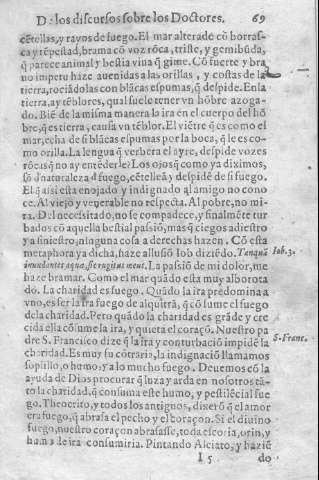 D. los discursos sobre los Doctores. 69
cẽtellas, y rayos de fuego. El mar alterado cõ borras-
ca y tẽpestad, brama cõ voz rõca, triste, y gemibũda,
q̃ parece animal y bestia viua q̃ gime. Cõ fuerte y bra
uo impetu haze auenidas a las orillas, y costas de la
tierra, rociãdolas con blãcas espumas, q̃ despide. En la
tierra, ay tẽblores, qual suele tener vn hõbre azoga-
do. Biẽ de la misma manera la ira en el cuerpo del hõ
bre, q̃ es tierra, causa vn tẽblor. El viẽtre q̃ es como el
mar, echa de si blãcas espumas por la boca, q̃ le es co-
mo orilla. La lengua q̃ verbera el ayre, despide vozes
rõcas q̃ no ay entẽderle? Los ojos q̃ como ya diximos,
sõ d̃ naturaleza d̃ fuego, cẽtellea y despidẽ de si fuego.
El q̃ assi esta enojado y indignado al amigo no cono
ce. Al viejo y venerable no respecta. Al pobre, no mi-
ra. Del necesitado, no se compadece, y finalmẽte tur
bados cõ aquella bestial passiõ, mas q̃ ciegos adiestro
y a siniestro, ninguna cosa a derechas hazen. Cõ esta
metaphora ya dicha, haze allusiõ Iob diziẽdo. Tanquã Iob. 3.
inundantes aquæ, sic rugitus meus. La passiõ de mi dolor, me
haze bramar. Como el mar quãdo esta muy alborota
dõ. La charidad es fuego. Quãdo la ira predomina a
vno, es ser la ira fuego de alquitrã, q̃ cõsume el fuego
de la charidad. Pero quãdo la charidad es grãde y cre
cida ella cõsume la ira, y quieta el coraçõ. Nuestro pa
dre S. Francisco dize q̃ la ira y conturbaciõ impidẽ la S. Franc.
charidad. Es muy su cõtraria, la indignaciõ llamamos
soplillo, o humo: y a lo mucho fuego. Deuemos cõ la
ayuda de Dios procurar q̃ luza y arda en nosotros tã-
to la charidad, q̃ consuma este humo, y pestilẽcial fue
go. Theocrito, y todos los antiguos, dixerõ q̃ el amor
era fuego, q̃ abrasa el pecho y el coraçon. Si el diuino
fuego, nuestro coraçon abrasasse, toda escoria, orin, y
humo de ira consumiria. Pintando Alciato, y haziẽ
I 5 do